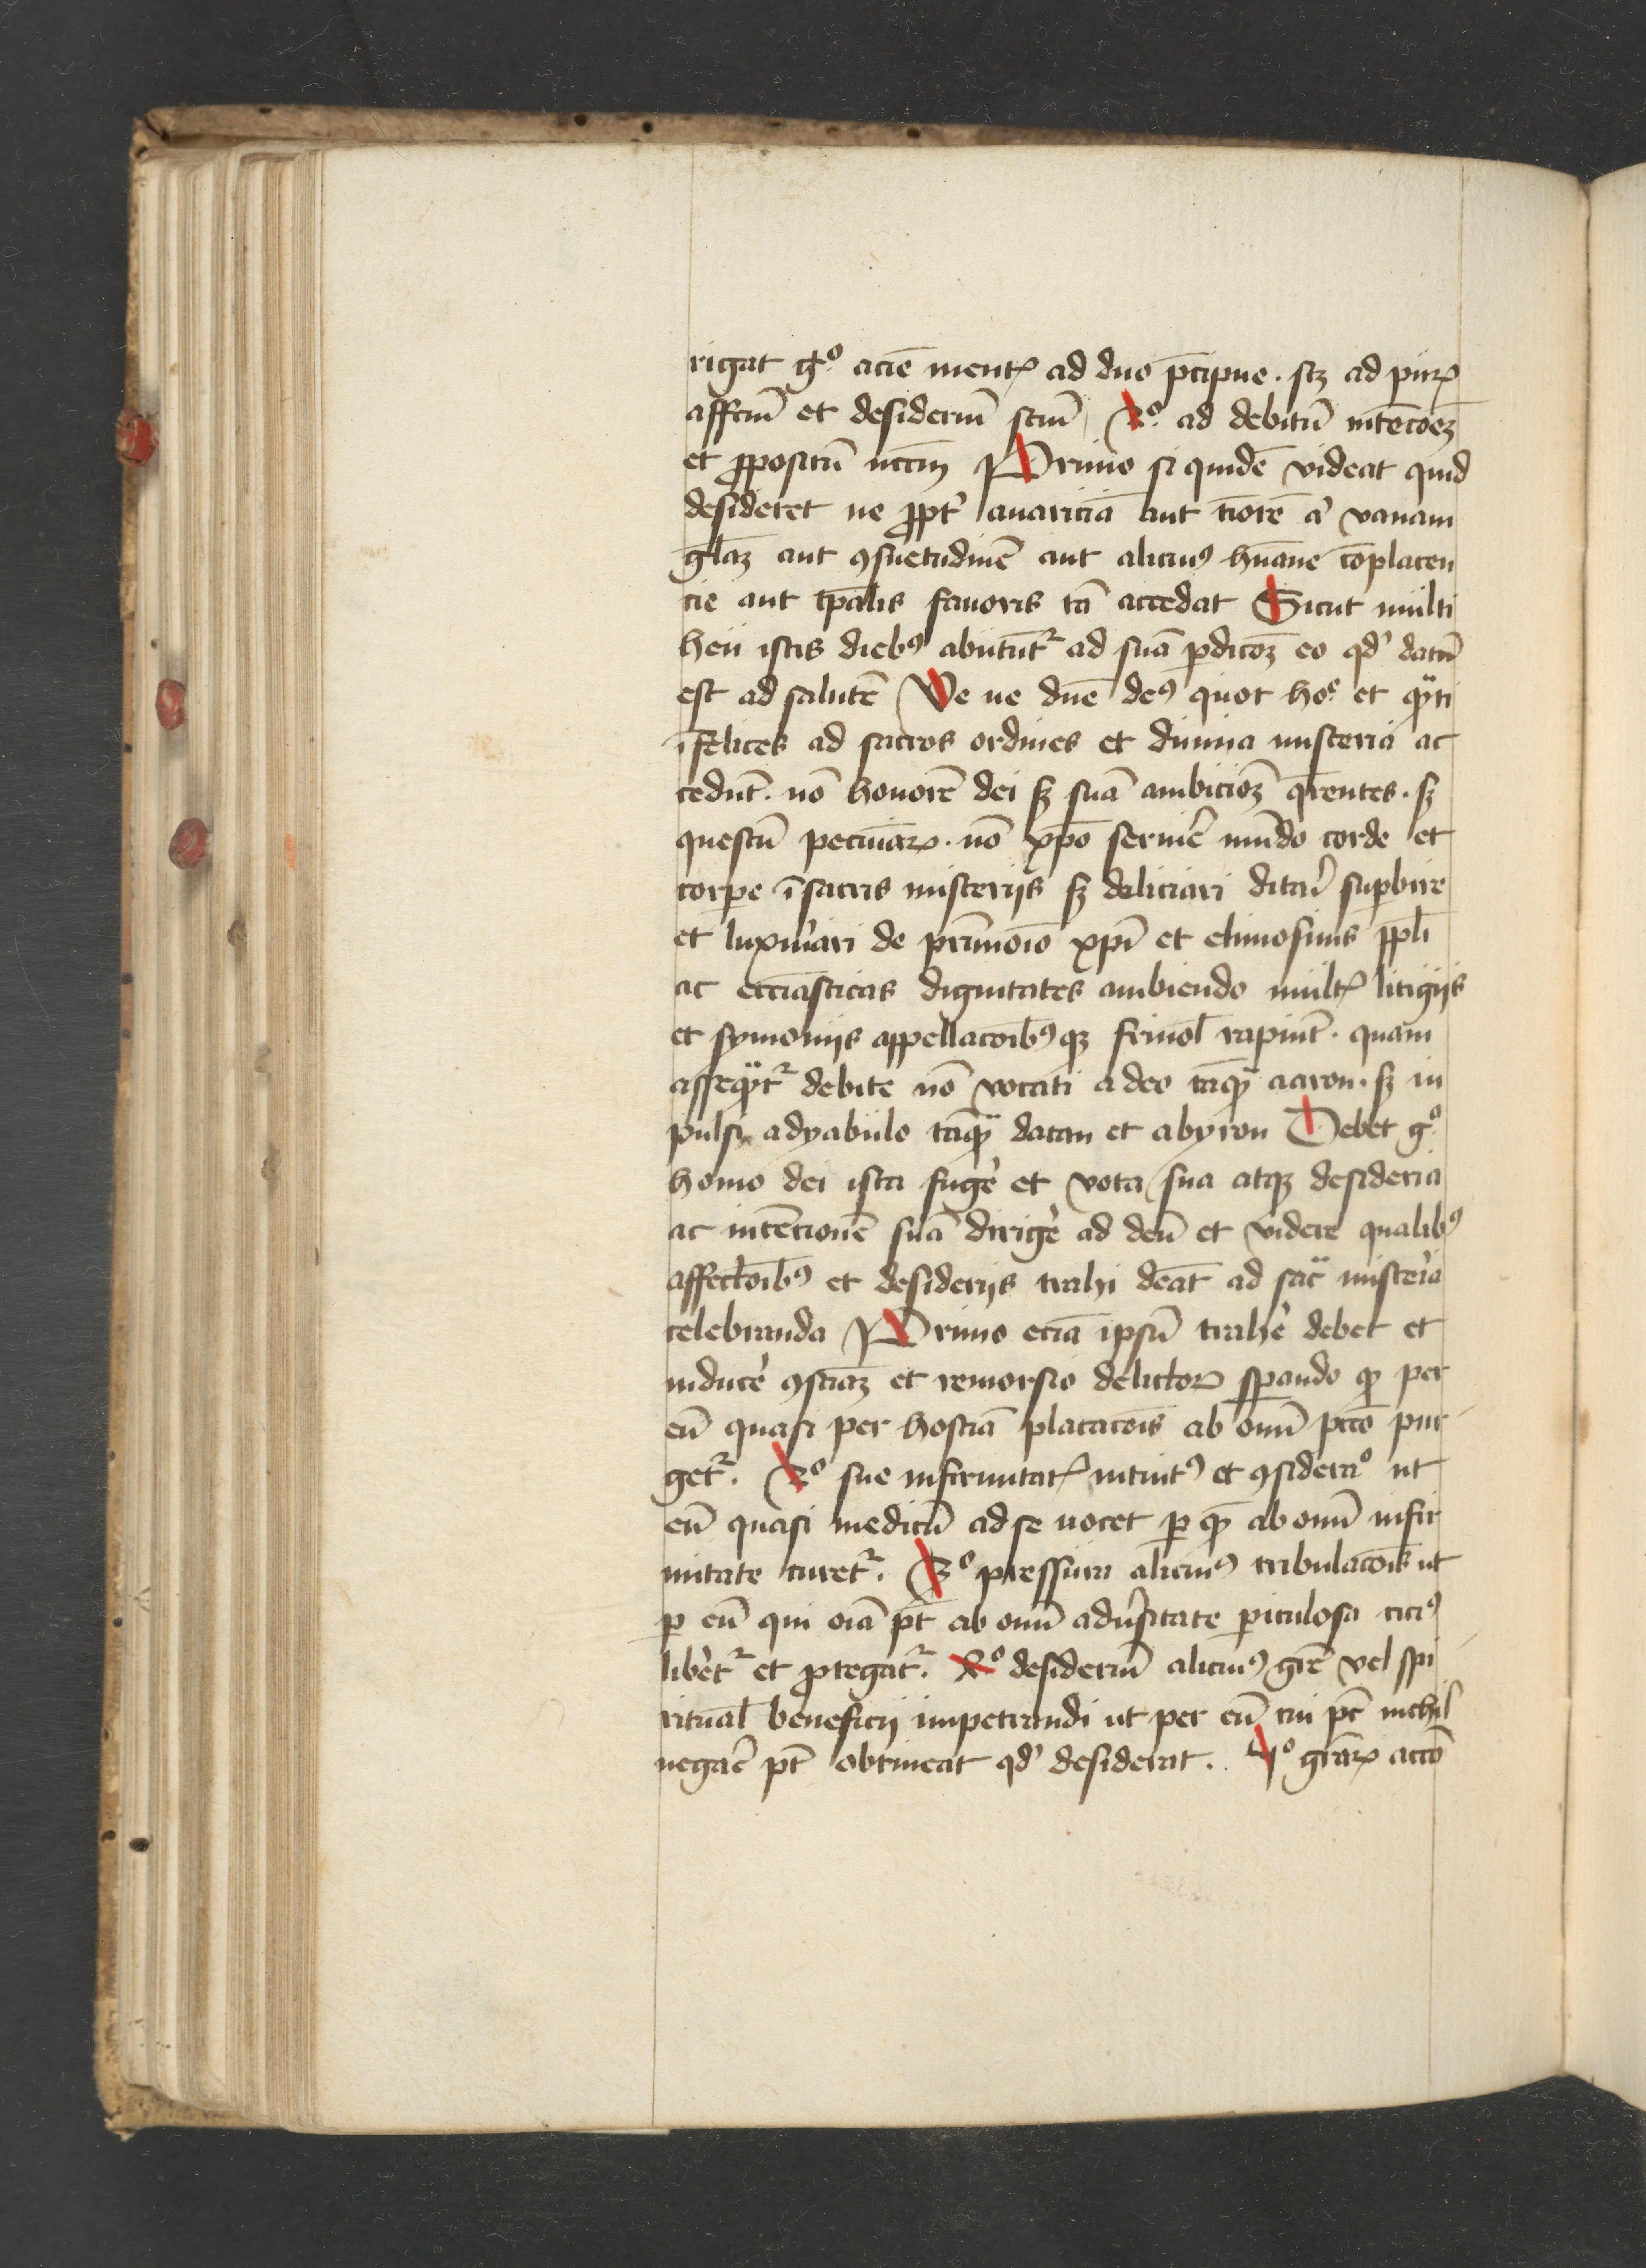 rigat gͦ. aciē mentꝭ ad duo p̄cipue. scꝫ ad puꝝ
affcm̄ et desideriū scm̄ 2ͦ. ad debitū intēcōeꝫ
et ꝓpositū rectm̄ Primo si quidē videat quid
desideret ne ꝓpt̉ auariciā aut tiorē a̓ vanam
gl̄aꝫ aut ꝯsuetudinē aut alicuiꝰ hūane cōplacen
cie aut tp̄alis fauoris tm̄ accedat Sicut multi
heu istis diebꝰ abutūtᷣ ad suā ꝑdicōꝫ eo qd̓ datū
est ad salutē Ve ve dn̄e deꝰ quot hoͤ. et qᷓti
īfelices ad sacros ordines et diuina misteria ac
cedūt. nō honorē dei sꝫ suā ambiciōꝫ q̄rentes. sꝫ
questū pecuniaꝝ. nō xp̄o seruie̓ mūdo corde et
corpe ī sacris misterijs sꝫ deliciari ditari supbire
et luxuriari de p̄rimoīo xp̄i et elimosinis ppl̄i
ac eccīasticas dignitates ambiendo multꝭ litigijs
et symonijs appellacōibꝰqꝫ friuol̄ rapiūt. quam
asseqᷓtᷣ debite nō vocati a deo tāqᷓ aaron. sꝫ in
pulsi a dyabulo tāqᷓ datan et abyron Debet gͦ.
homo dei ista fuge̓ et vota sua atqꝫ desideria
ac intēcionē suā dirige̓ ad deū et videre qualibꝰ
affectōibꝰ et desiderijs trahi deāt ad sacᷓ misteria
celebranda Primo eciā ipsū trahe̓ debet et
induce̓ ꝯsciaꝫ et remorsio delictoꝝ sperando ꝙ per
eū quasi per hostiā placacōis ab om̄i pctō pur
getᷣ. 2ͦ sue infirmitatꝭ intuitꝰ et ꝯsideraͦ ut
eū quasi medicū ad se vocet ꝑ quē ab om̄i infir
mitate curetᷣ. 3ͦ pressura alicuiꝰ tribulacōis ut
ꝑ eū qui oīa pt̄ ab om̄i adu̓sitate ꝑiculosa ciciꝰ
libe̓tᷣ et ꝓtegatᷣ. 4ͦ desideriū alicuiꝰ gr̄e vel spi
ritual̄ beneficij impetrandi ut per eū cui pr̄ nichil
negae̓ pt̄ obtineat qd̓ desiderat. 5ͦ gr̄aꝝ accō